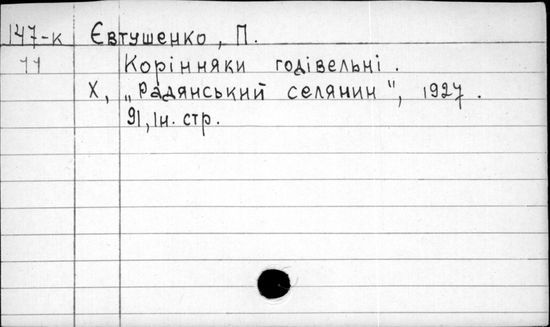 147-к Євтушенко, П.
11 Корінняки годівельні.
Х, „Радянський селянин", 1927.
91, ін. стр.